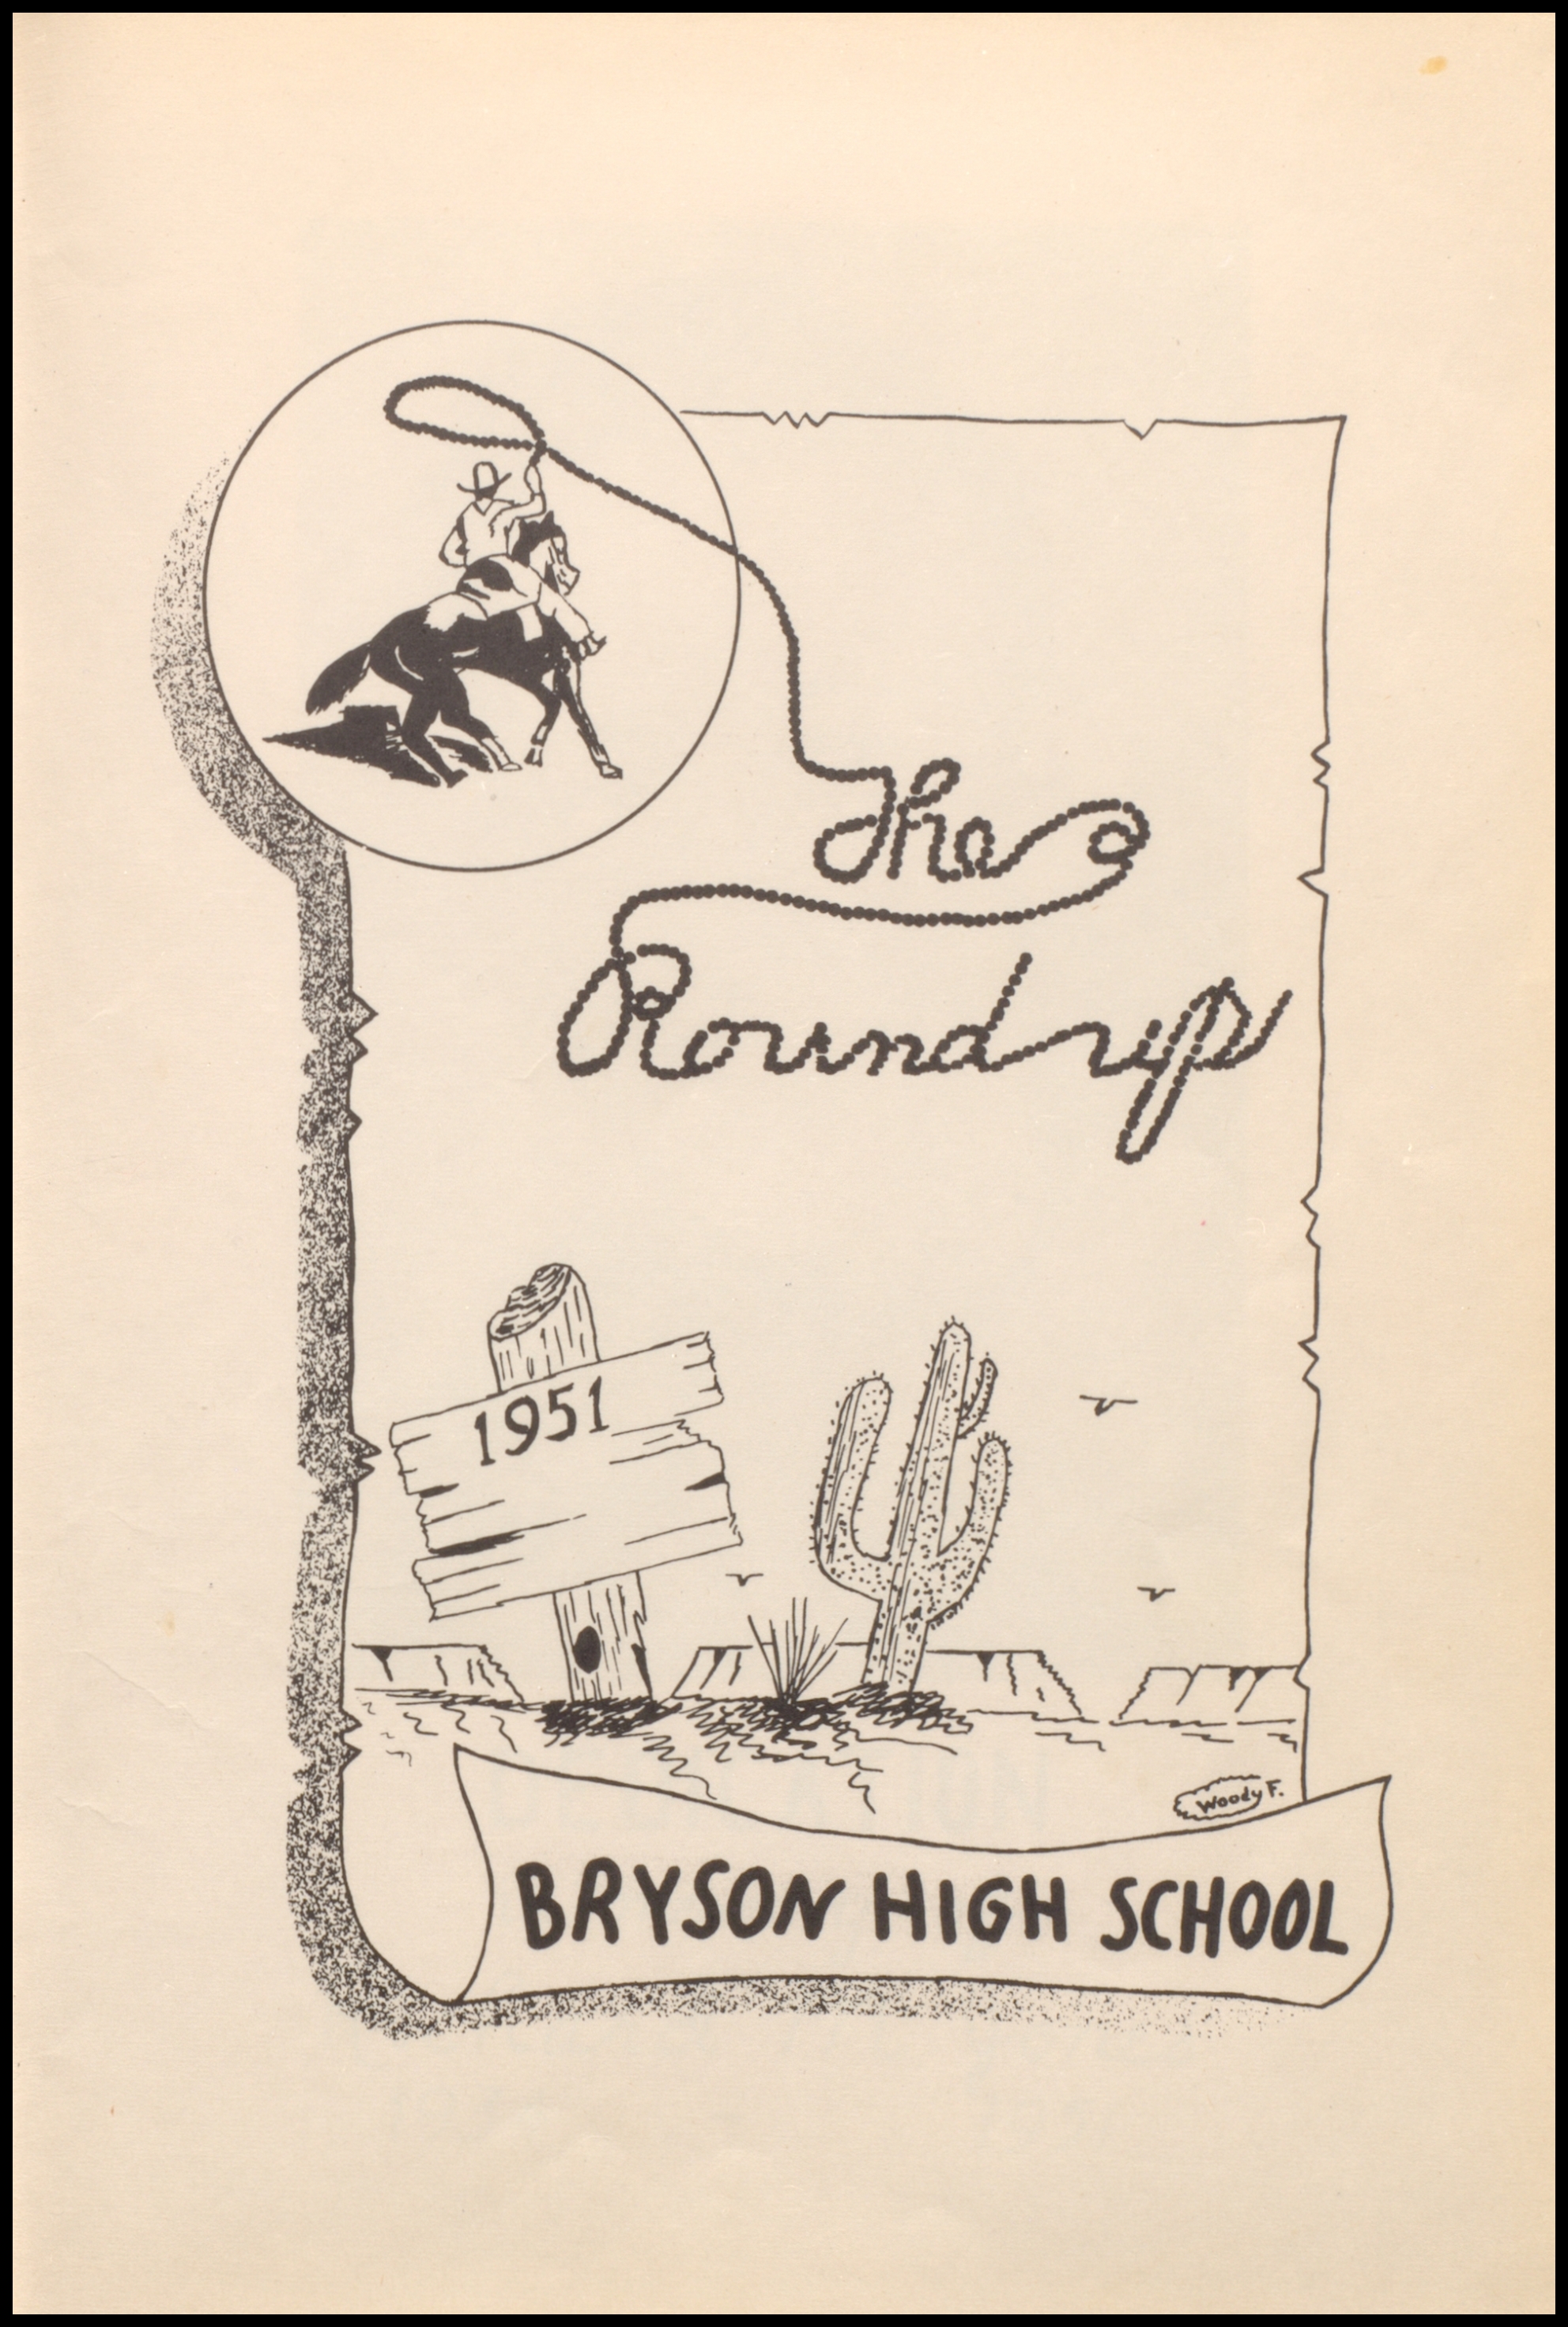 The
Roundup
1951
Woody F.
BRYSON HIGH SCHOOL